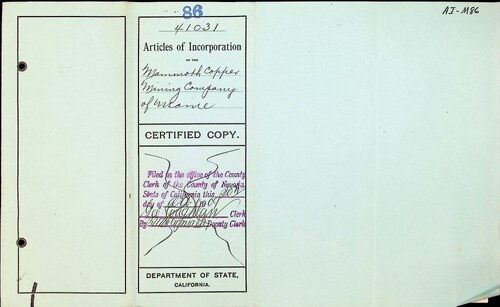 86
AI-M86
41031
Articles of Incorporation
OF THE
Mammoth Copper
Mining Company
of Maine
CERTIFIED COPY.
Filed in the office of the County
Clerk of the County of Nevada,
State of California this
day of 190
Clerk
By Deputy Clerk
DEPARTMENT OF STATE,
CALIFORNIA.